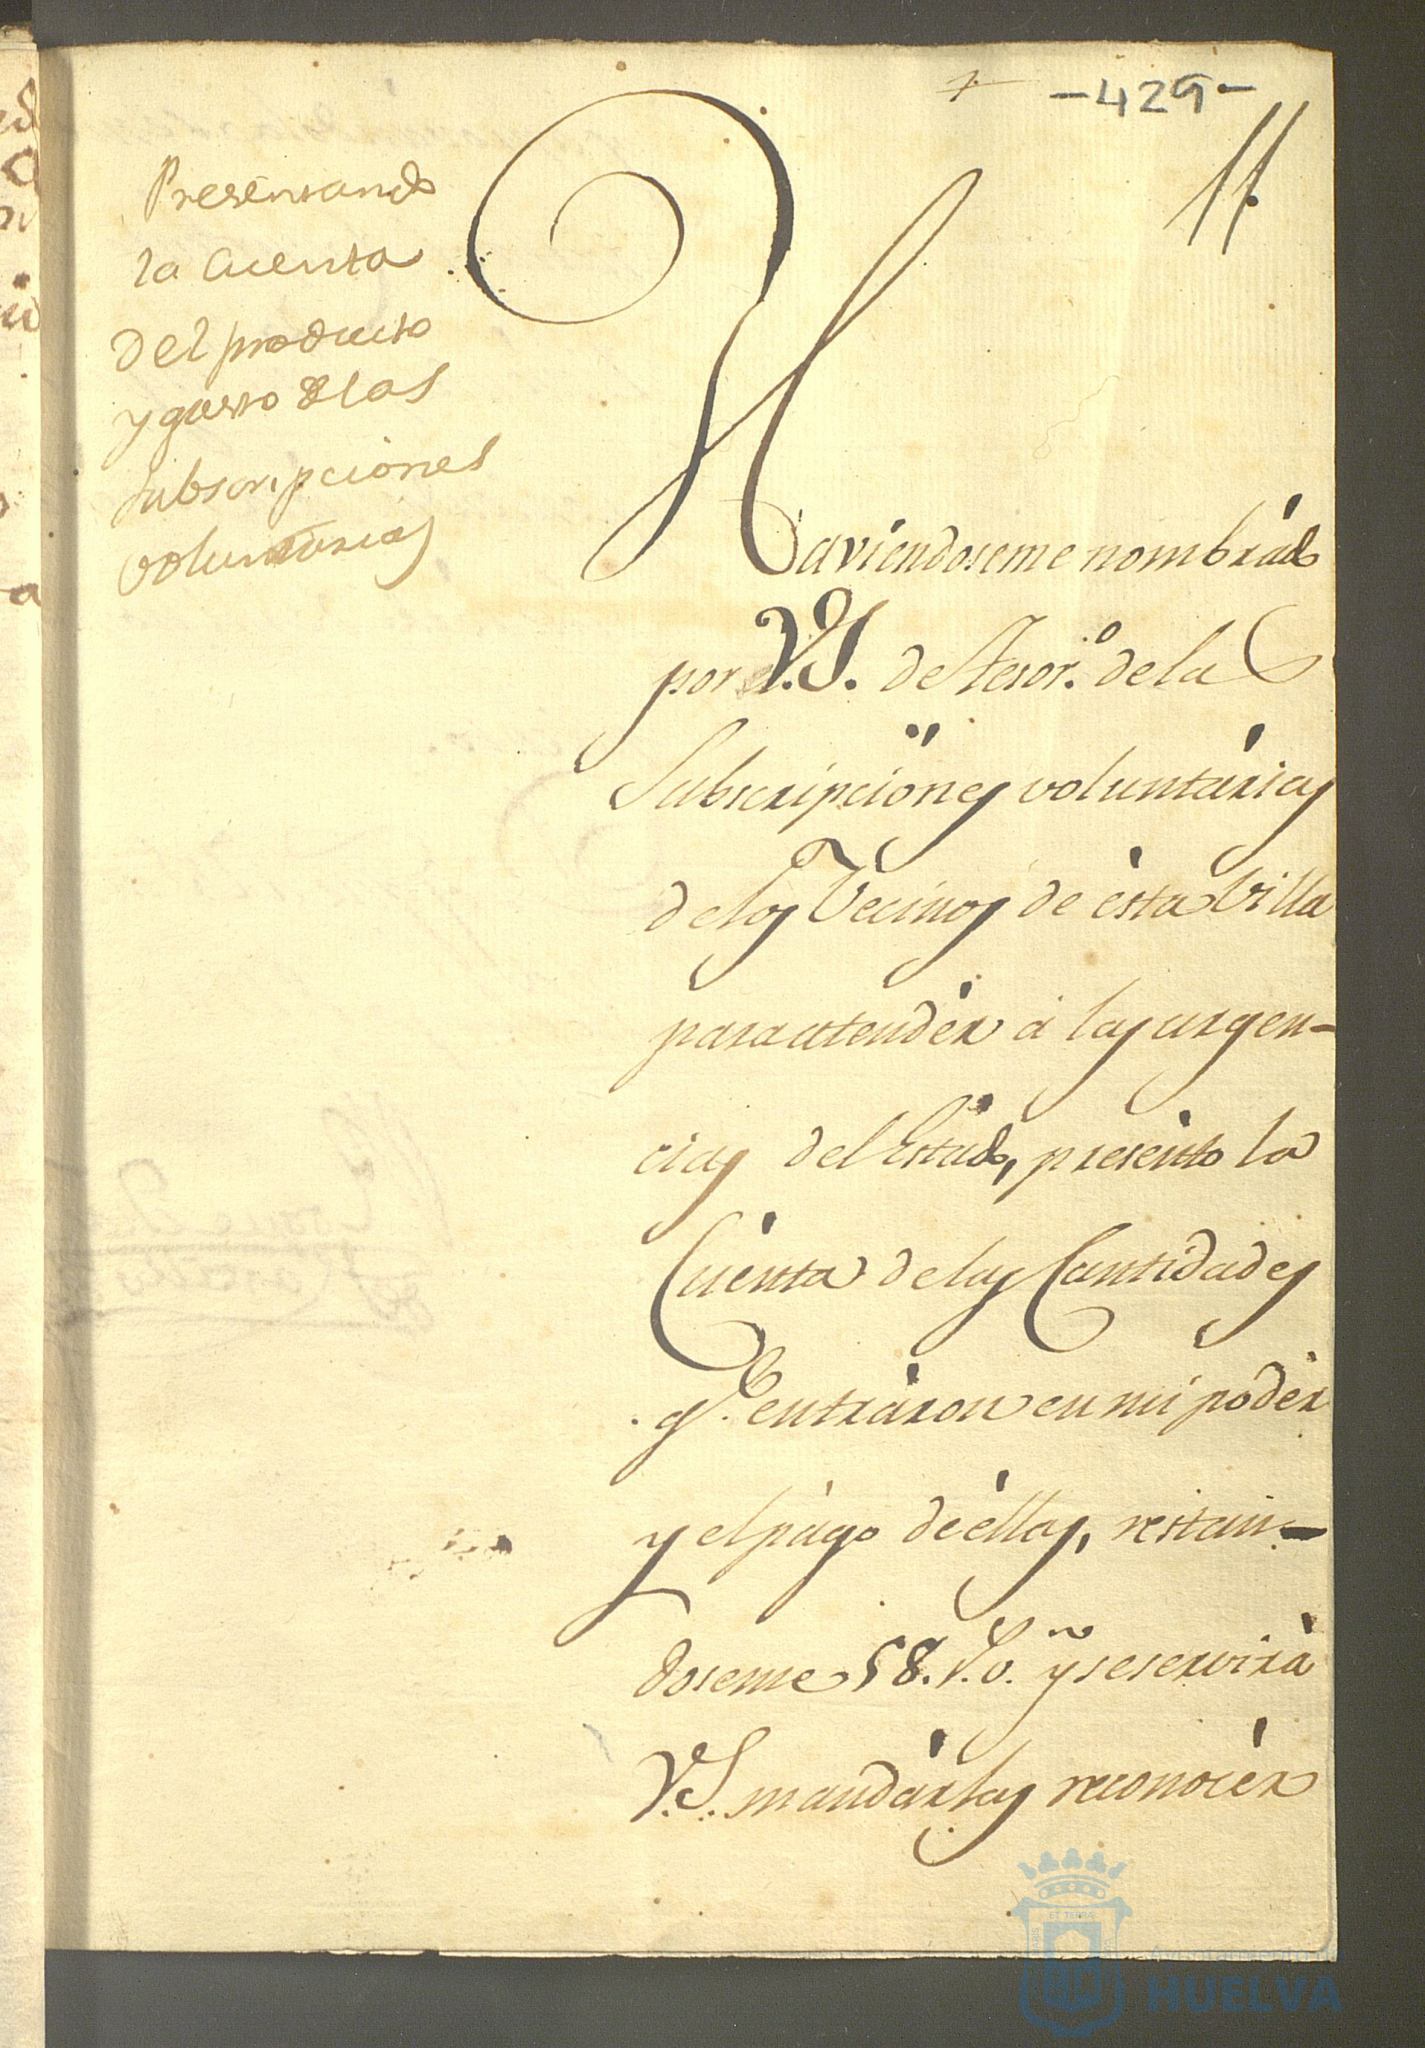 -429-
Presentando
la Cuenta
del producto
y gasto de las
subscripciones
voluntarias
Haviendoseme nombrádo
por V.S. de Tesor.º de la
Subscripciònes voluntárias
de los Vecinos de èsta Villa
para atendèr á las urgen-
cias del Estádo, presènto la
Cuènta de las Cantidades
q.e entráron en mi podèr
y el págo de èllas, restan-
doseme 58. r.v. y se servirà
V.S. mandárlas reconocèr
ET TERRA
Ayuntamiento de
HUELVA